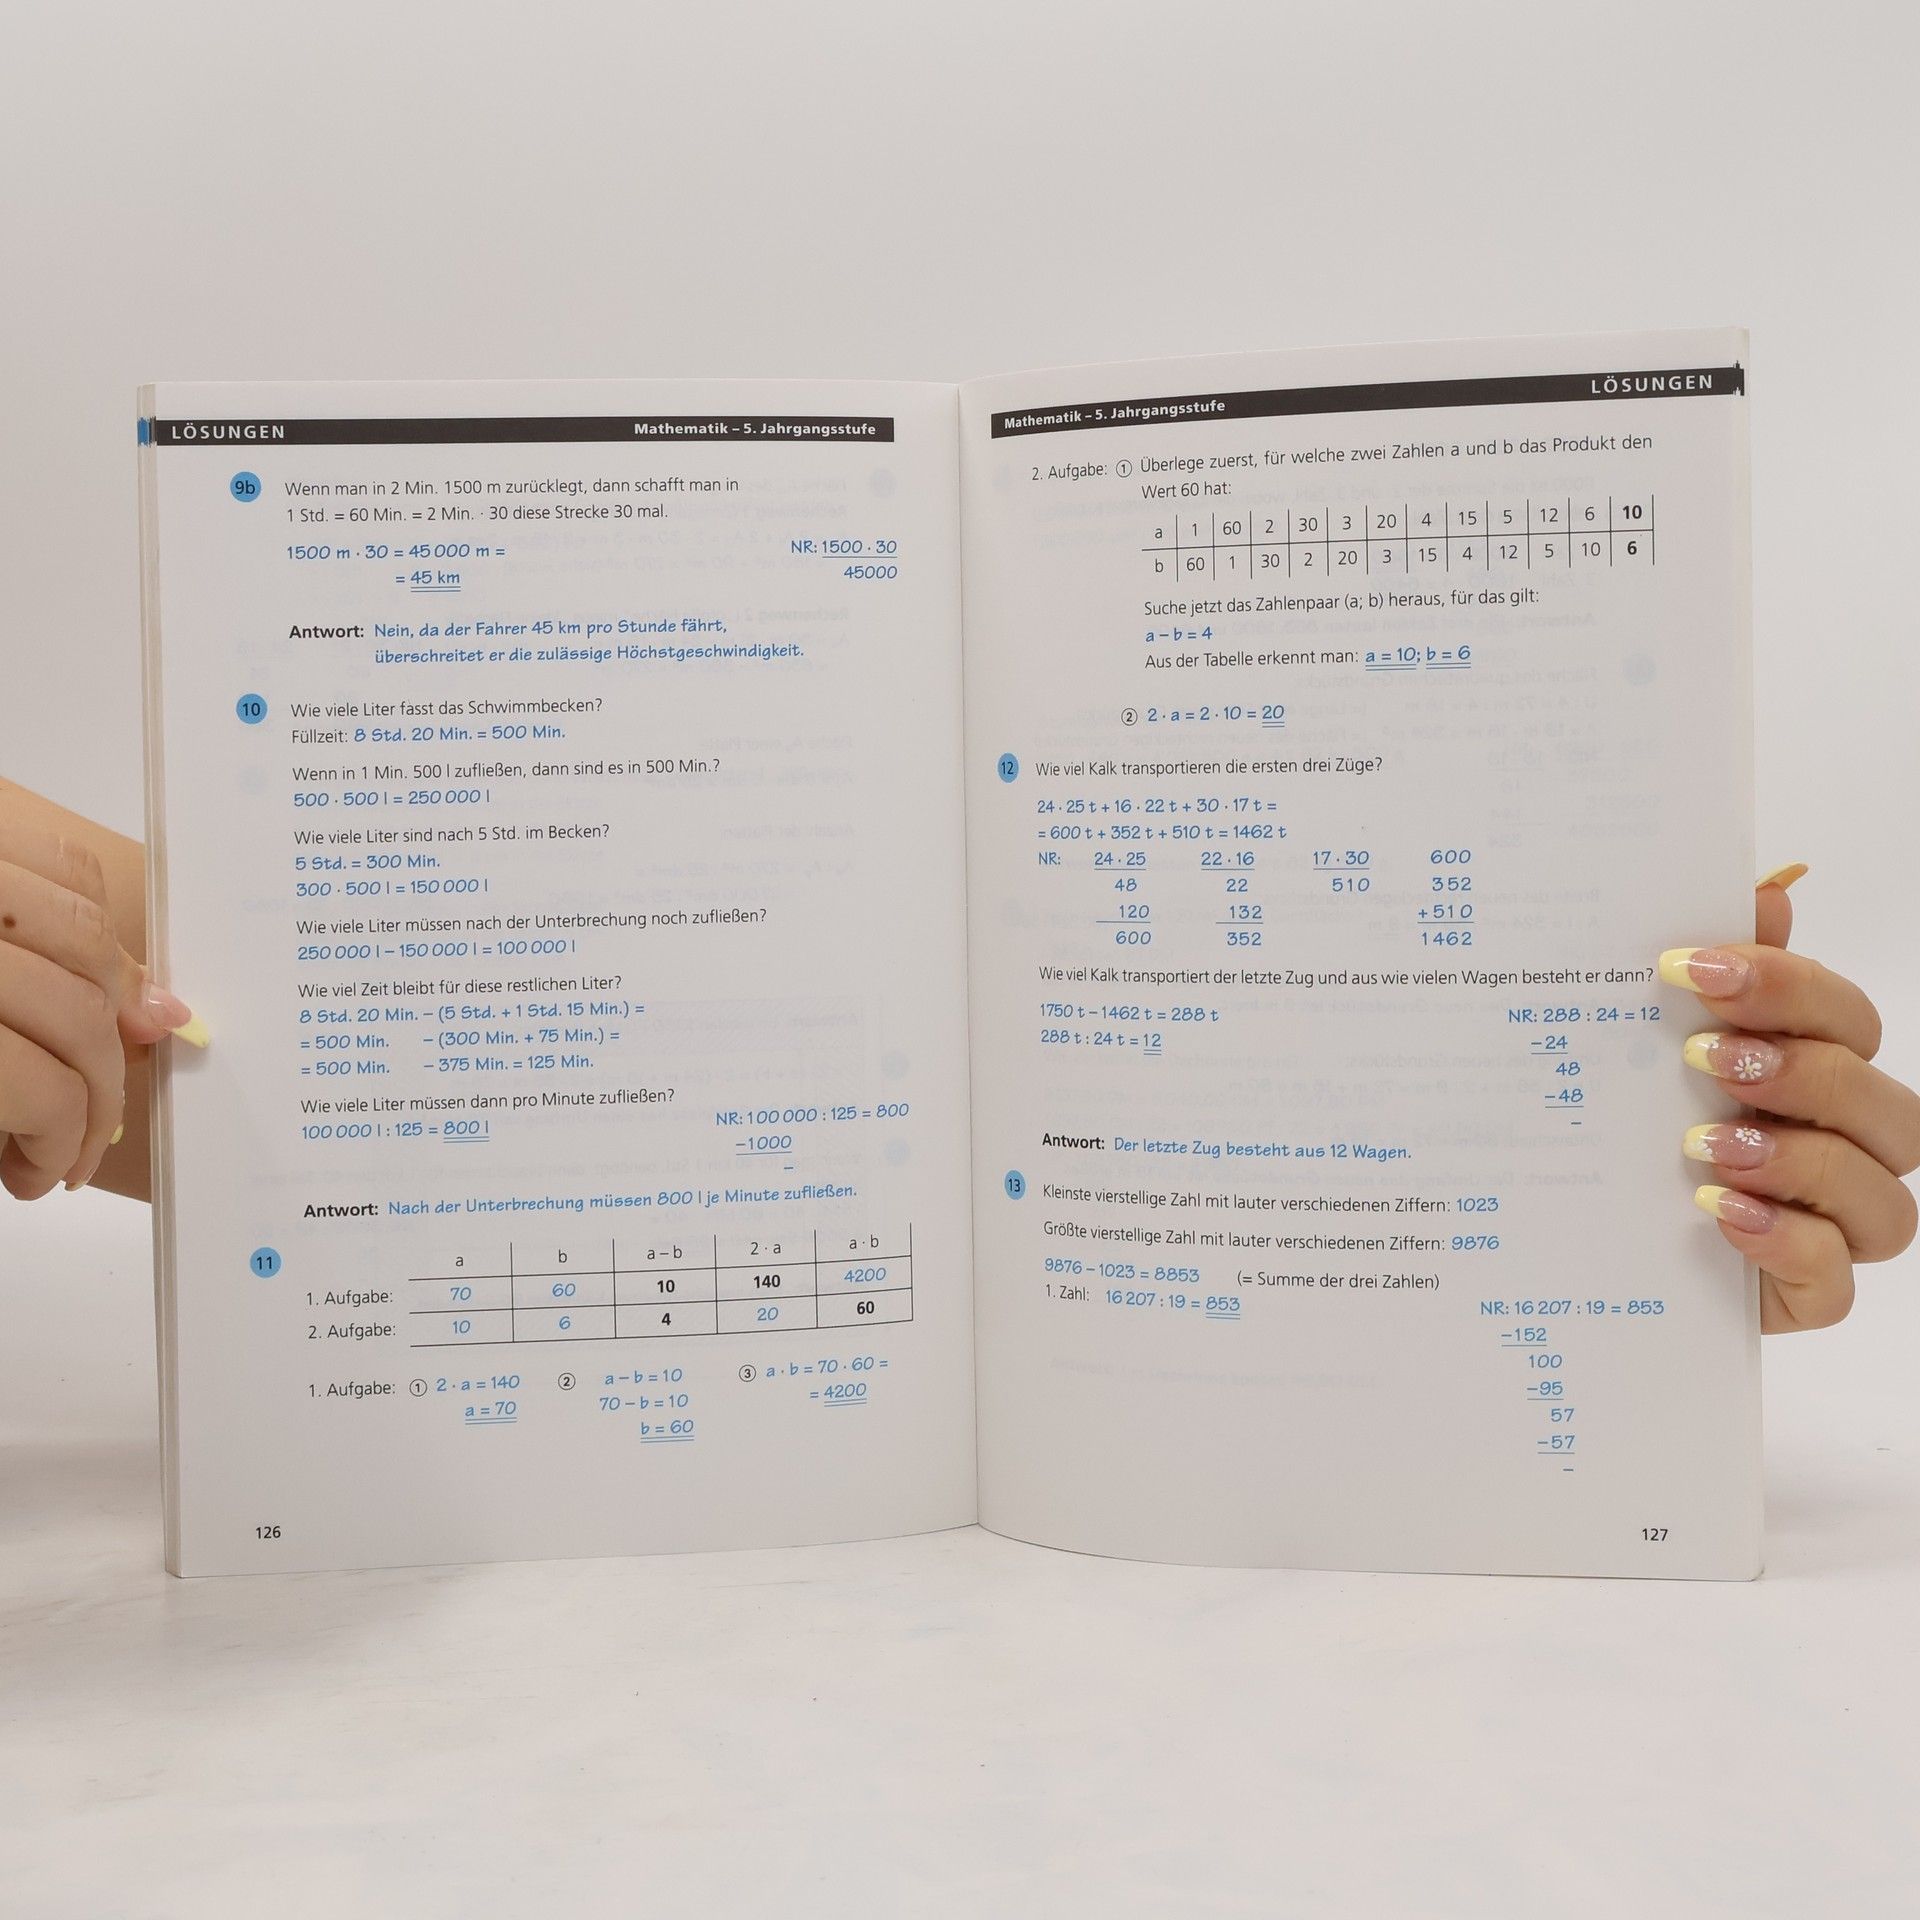 LÖSUNGEN Mathematik – 5. Jahrgangsstufe
9b Wenn man in 2 Min. 1500 m zurücklegt, dann schafft man in
1 Std. = 60 Min. = 2 Min. · 30 diese Strecke 30 mal.
1500 m · 30 = 45 000 m = NR: 1500 · 30
= 45 km 45000
Antwort: Nein, da der Fahrer 45 km pro Stunde fährt,
überschreitet er die zulässige Höchstgeschwindigkeit.
10 Wie viele Liter fasst das Schwimmbecken?
Füllzeit: 8 Std. 20 Min. = 500 Min.
Wenn in 1 Min. 500 l zufließen, dann sind es in 500 Min.?
500 · 500 l = 250 000 l
Wie viele Liter sind nach 5 Std. im Becken?
5 Std. = 300 Min.
300 · 500 l = 150 000 l
Wie viele Liter müssen nach der Unterbrechung noch zufließen?
250 000 l – 150 000 l = 100 000 l
Wie viel Zeit bleibt für diese restlichen Liter?
8 Std. 20 Min. – (5 Std. + 1 Std. 15 Min.) =
= 500 Min. – (300 Min. + 75 Min.) =
= 500 Min. – 375 Min. = 125 Min.
Wie viele Liter müssen dann pro Minute zufließen?
100 000 l : 125 = 800 l NR: 100 000 : 125 = 800
–1000
–
Antwort: Nach der Unterbrechung müssen 800 l je Minute zufließen.
11 a b a – b 2 · a a · b
1. Aufgabe: 70 60 10 140 4200
2. Aufgabe: 10 6 4 20 60
1. Aufgabe: ① 2 · a = 140 ② a – b = 10 ③ a · b = 70 · 60 =
a = 70 70 – b = 10 = 4200
b = 60
126
Mathematik – 5. Jahrgangsstufe LÖSUNGEN
2. Aufgabe: ① Überlege zuerst, für welche zwei Zahlen a und b das Produkt den
Wert 60 hat:
a 1 60 2 30 3 20 4 15 5 12 6 10
b 60 1 30 2 20 3 15 4 12 5 10 6
Suche jetzt das Zahlenpaar (a; b) heraus, für das gilt:
a – b = 4
Aus der Tabelle erkennt man: a = 10; b = 6
② 2 · a = 2 · 10 = 20
12 Wie viel Kalk transportieren die ersten drei Züge?
24 · 25 t + 16 · 22 t + 30 · 17 t =
= 600 t + 352 t + 510 t = 1462 t
NR: 24 · 25 22 · 16 17 · 30 600
48 22 510 352
120 132 + 510
600 352 1462
Wie viel Kalk transportiert der letzte Zug und aus wie vielen Wagen besteht er dann?
1750 t – 1462 t = 288 t NR: 288 : 24 = 12
288 t : 24 t = 12 –24
48
–48
–
Antwort: Der letzte Zug besteht aus 12 Wagen.
13 Kleinste vierstellige Zahl mit lauter verschiedenen Ziffern: 1023
Größte vierstellige Zahl mit lauter verschiedenen Ziffern: 9876
9876 – 1023 = 8853 (= Summe der drei Zahlen)
1. Zahl: 16 207 : 19 = 853 NR: 16 207 : 19 = 853
–152
100
–95
57
–57
–
127